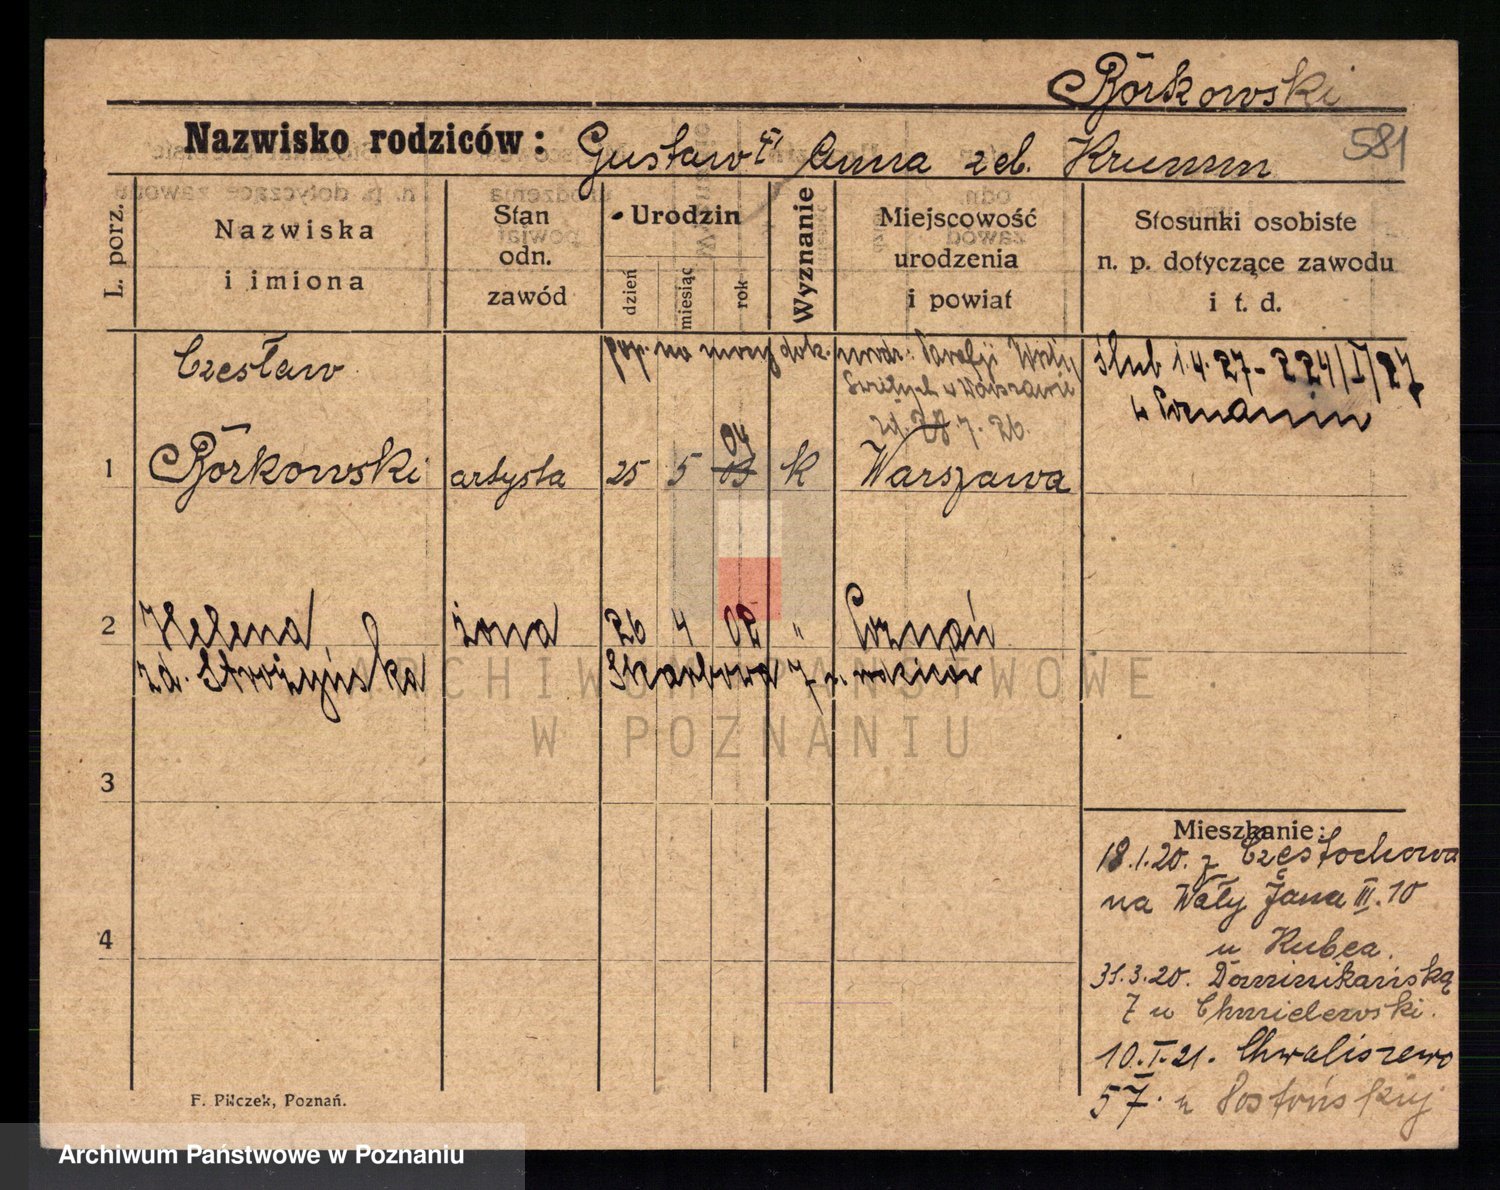 Borkowski
581
Nazwisko rodziców: Gustaw i Anna z d. Krumm
L. porz.
Nazwiska i imiona
Stan odn. zawód
Urodzin
dzień
miesiąc
rok
Wyznanie
Miejscowość urodzenia i powiat
Stosunki osobiste n. p. dotyczące zawodu i t. d.
Czesław
pop. na mocy dok. urodz. Parafji Wsch.
Świętych w Warszawie
zd. 28.7.26.
ślub 1.4.27 - 224/I/27
w Poznaniu
1 Borkowski artysta 25 5 03 04 k Warszawa
2 Helena żona 26 4 02 " Poznań
zd. Strożyńska Skarbowa 7 u rodziców
3
4
Mieszkanie:
18.1.20. z Częstochowa
na Wały Jana III. 10
u Kubca.
31.3.20. Dominikańską
7 u Chmielewski.
10.I.21. Chwaliszewo
57. u
F. Pilczek, Poznań.
ARCHIWUM PAŃSTWOWE
W POZNANIU
Archiwum Państwowe w Poznaniu